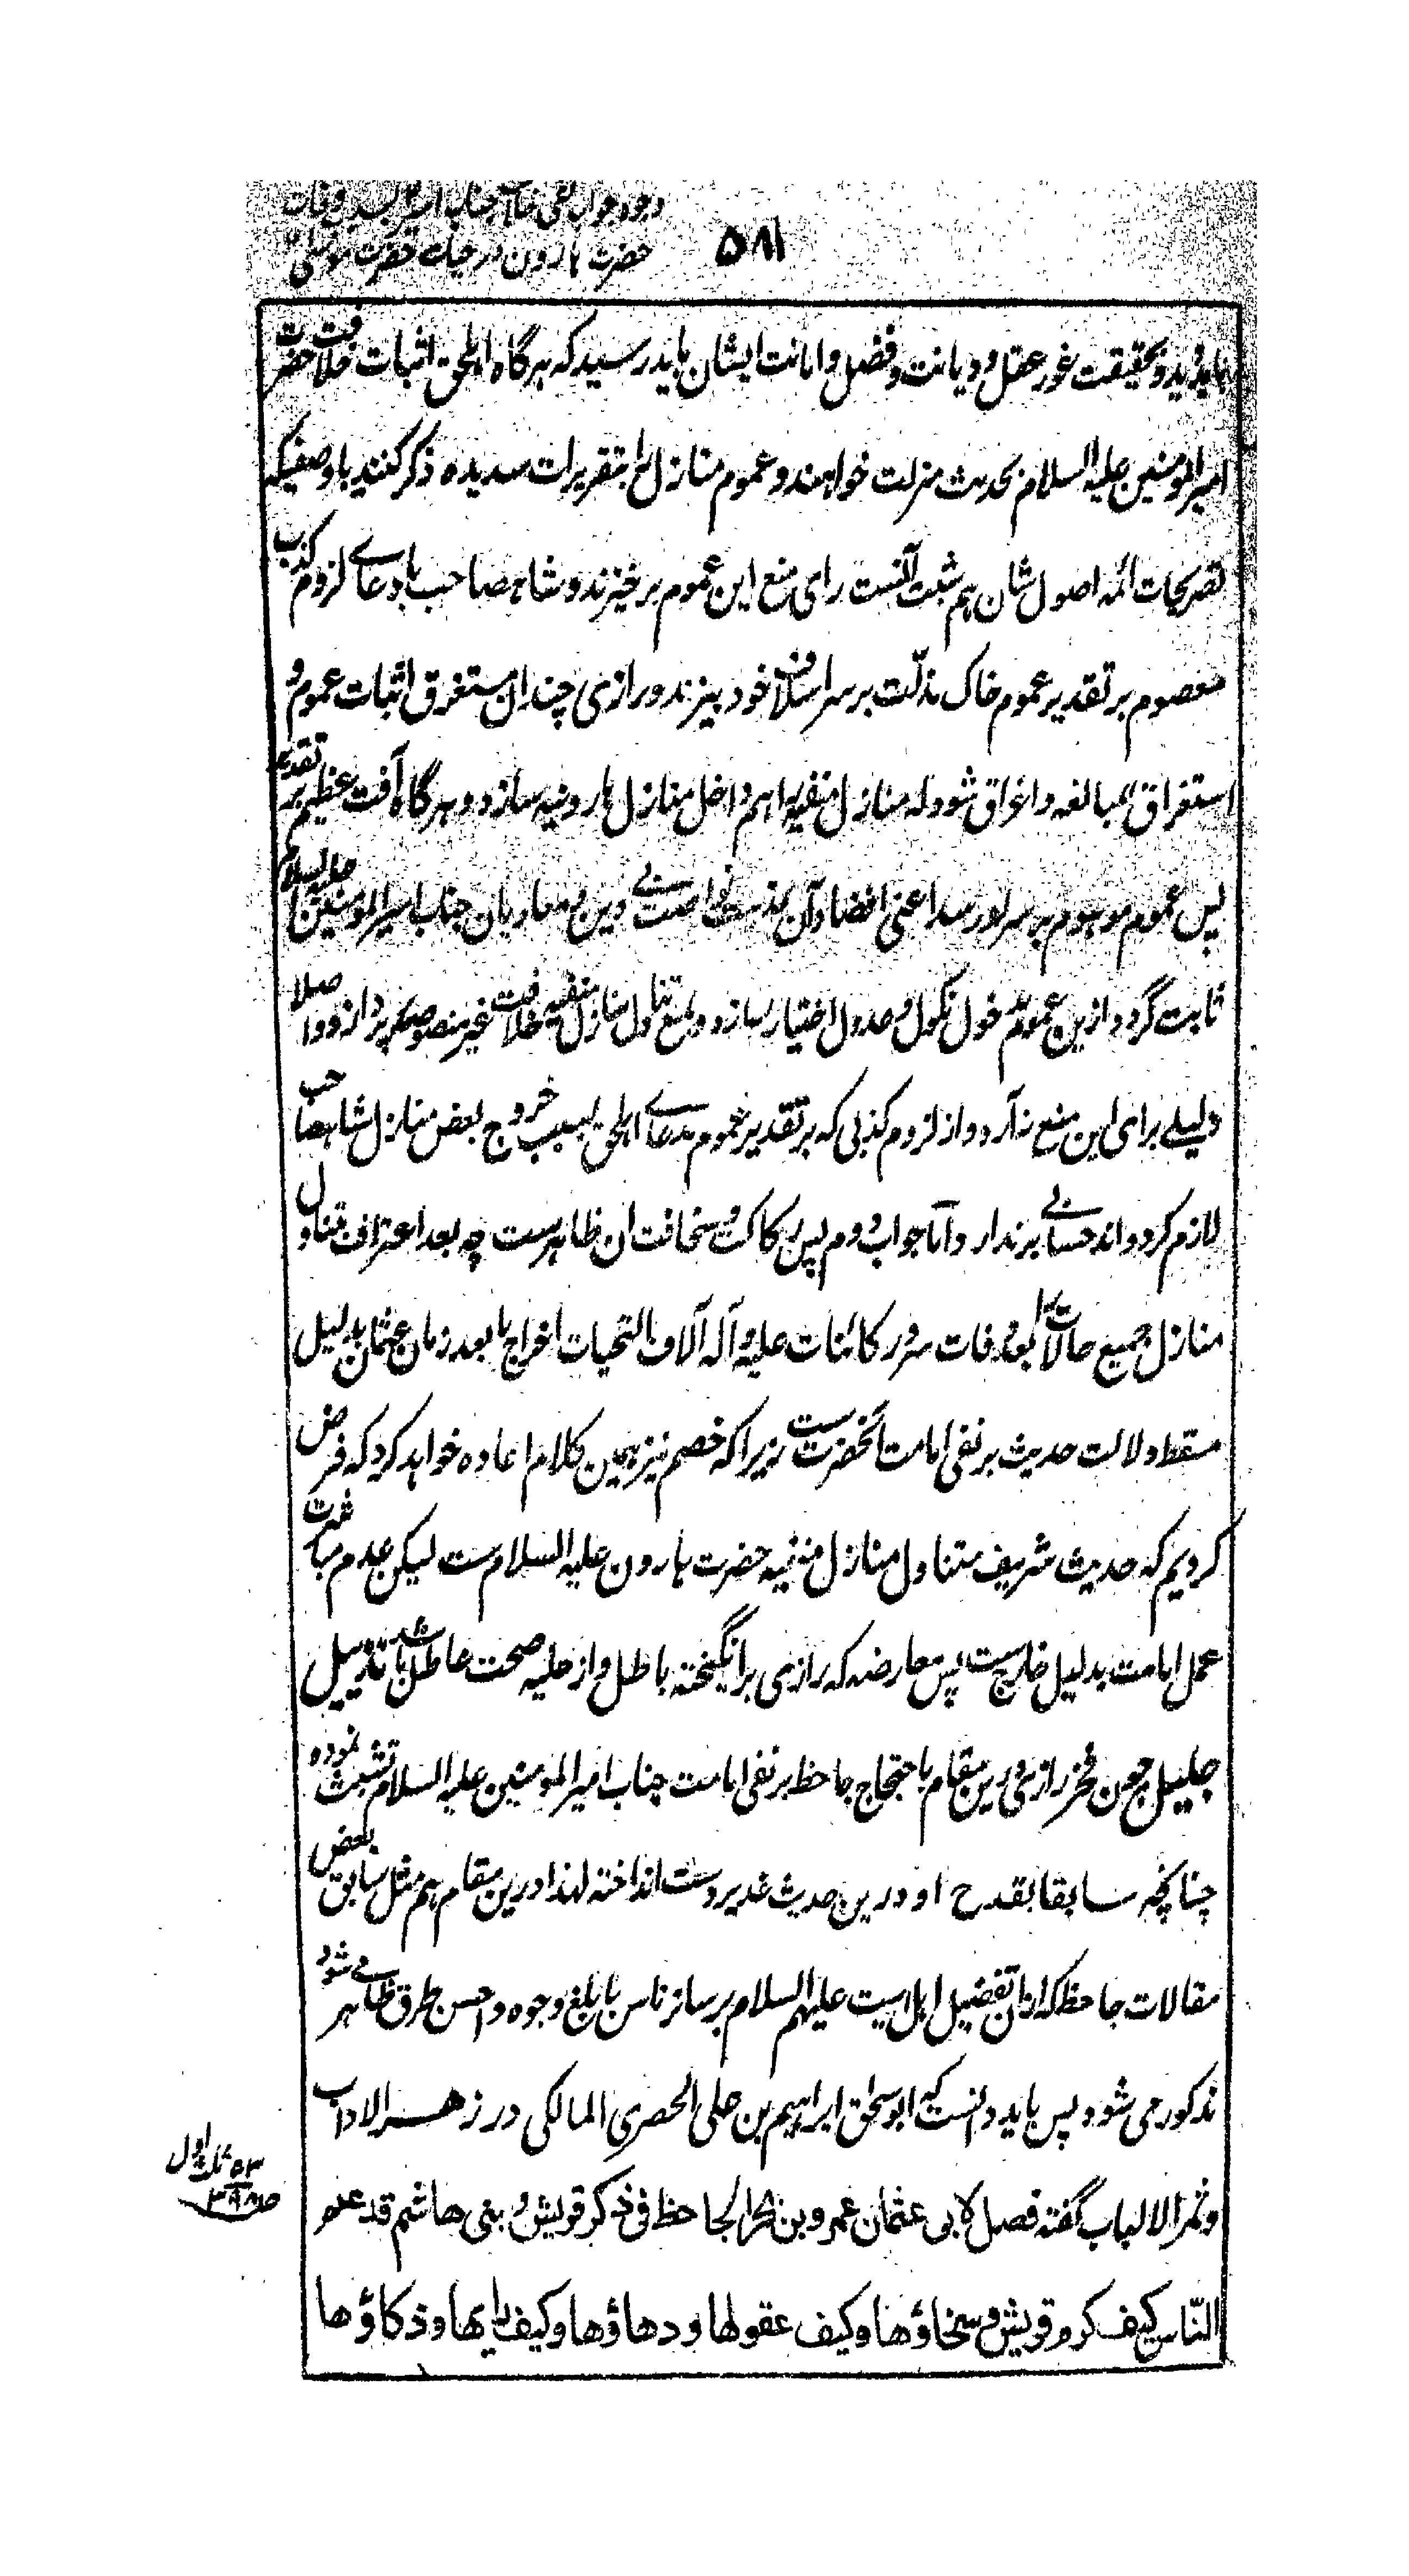 ۵۸۱
حضرت هارون در حیات حضرت موسی
باید دید و بحقیقت غور عقل و دیانت و فضل و امانت ایشان باید رسید که هرگاه اهلحق اثبات خلافت حضرت
امیرالمومنین علیه السلام بحدیث منزلت خواهند و عموم منازل را بتقریرات سدیده ذکر کنند باوصفیکه
تصریحات ائمه اصول شان هم مثبت آنست رای منع این عموم برخیزند و شاهصاحب بادعای لزوم کذب
معصوم بر تقدیر عموم خاک مذلّت بر سر اسلاف خود بیزند و رازی چندان مستغرق اثبات عموم و
استغراق بمبالغه و اغراق شود که منازل منفیه را هم داخل منازل هارونیه سازد و هرگاه آفت عظیم بر تقدیر
پس عموم موهوم بر سر او رسد اعنی افضاء آن بمذهب نواصب بی دین و معاریان جناب امیرالمومنین علیه السلام
ثابت گردد ازین عموم مخول نکول و عدول اختیار سازد و بمنع تناول منازل منفیه خلافت غیر منصوصه پردازد و اصلا
دلیلی برای این منع نیارد و از لزوم کذبی که بر تقدیر عموم مدعای اهلحق بسبب خروج بعض منازل شاهصاحب
لازم کرده اند حسابی برندارد و اما جواب دوم پس رکاکت و سخافت ان ظاهرست چه بعد اعتراف تناول
منازل جمیع حالات را بعد وفات سرور کائنات علیه و آله آلاف التحیات اخراج ما بعد زمان عثمان بدلیل
مسقط دلالت حدیث بر نفی امامت آنحضرت ست زیرا که خصم نیز همین کلام اعاده خواهد کرد که فرض
کردیم که حدیث شریف متناول منازل منفیه حضرت هارون علیه السلام ست لیکن عدم مباشرت
عمل امامت بدلیل خارج ست پس معارضه که رازی برانگیخته باطل و از حلیه صحت عاطل باشد تذییل
جلیل چون فخر رازی درین مقام باحتجاج جاحظ بر نفی امامت جناب امیرالمومنین علیه السلام تشبث نموده
چنانچه سابقا بقدح او در ین حدیث غدیر دست انداخته لهذا درین مقام هم مثل سابق بعض
مقالات جاحظ که ازان تفضیل اهل بیت علیهم السلام بر سائر ناس بابلغ وجوه و احسن طرق ظاهر می شود
مذکور می شود پس باید دانست که ابو سحق ابراهیم بن علی الحصری المالکی در زهر الاداب
و ثمر الالباب گفته فصل لابی عثمان عمرو بن بحر الجاحظ فی ذکر قریش و بنی هاشم قد علم
النّاس کیف کرم قریش و سخاؤها و کیف عقولها و دهاؤها و کیف رایها و ذکاؤها